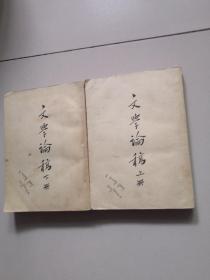 文學論稿下册
文學論稿上册